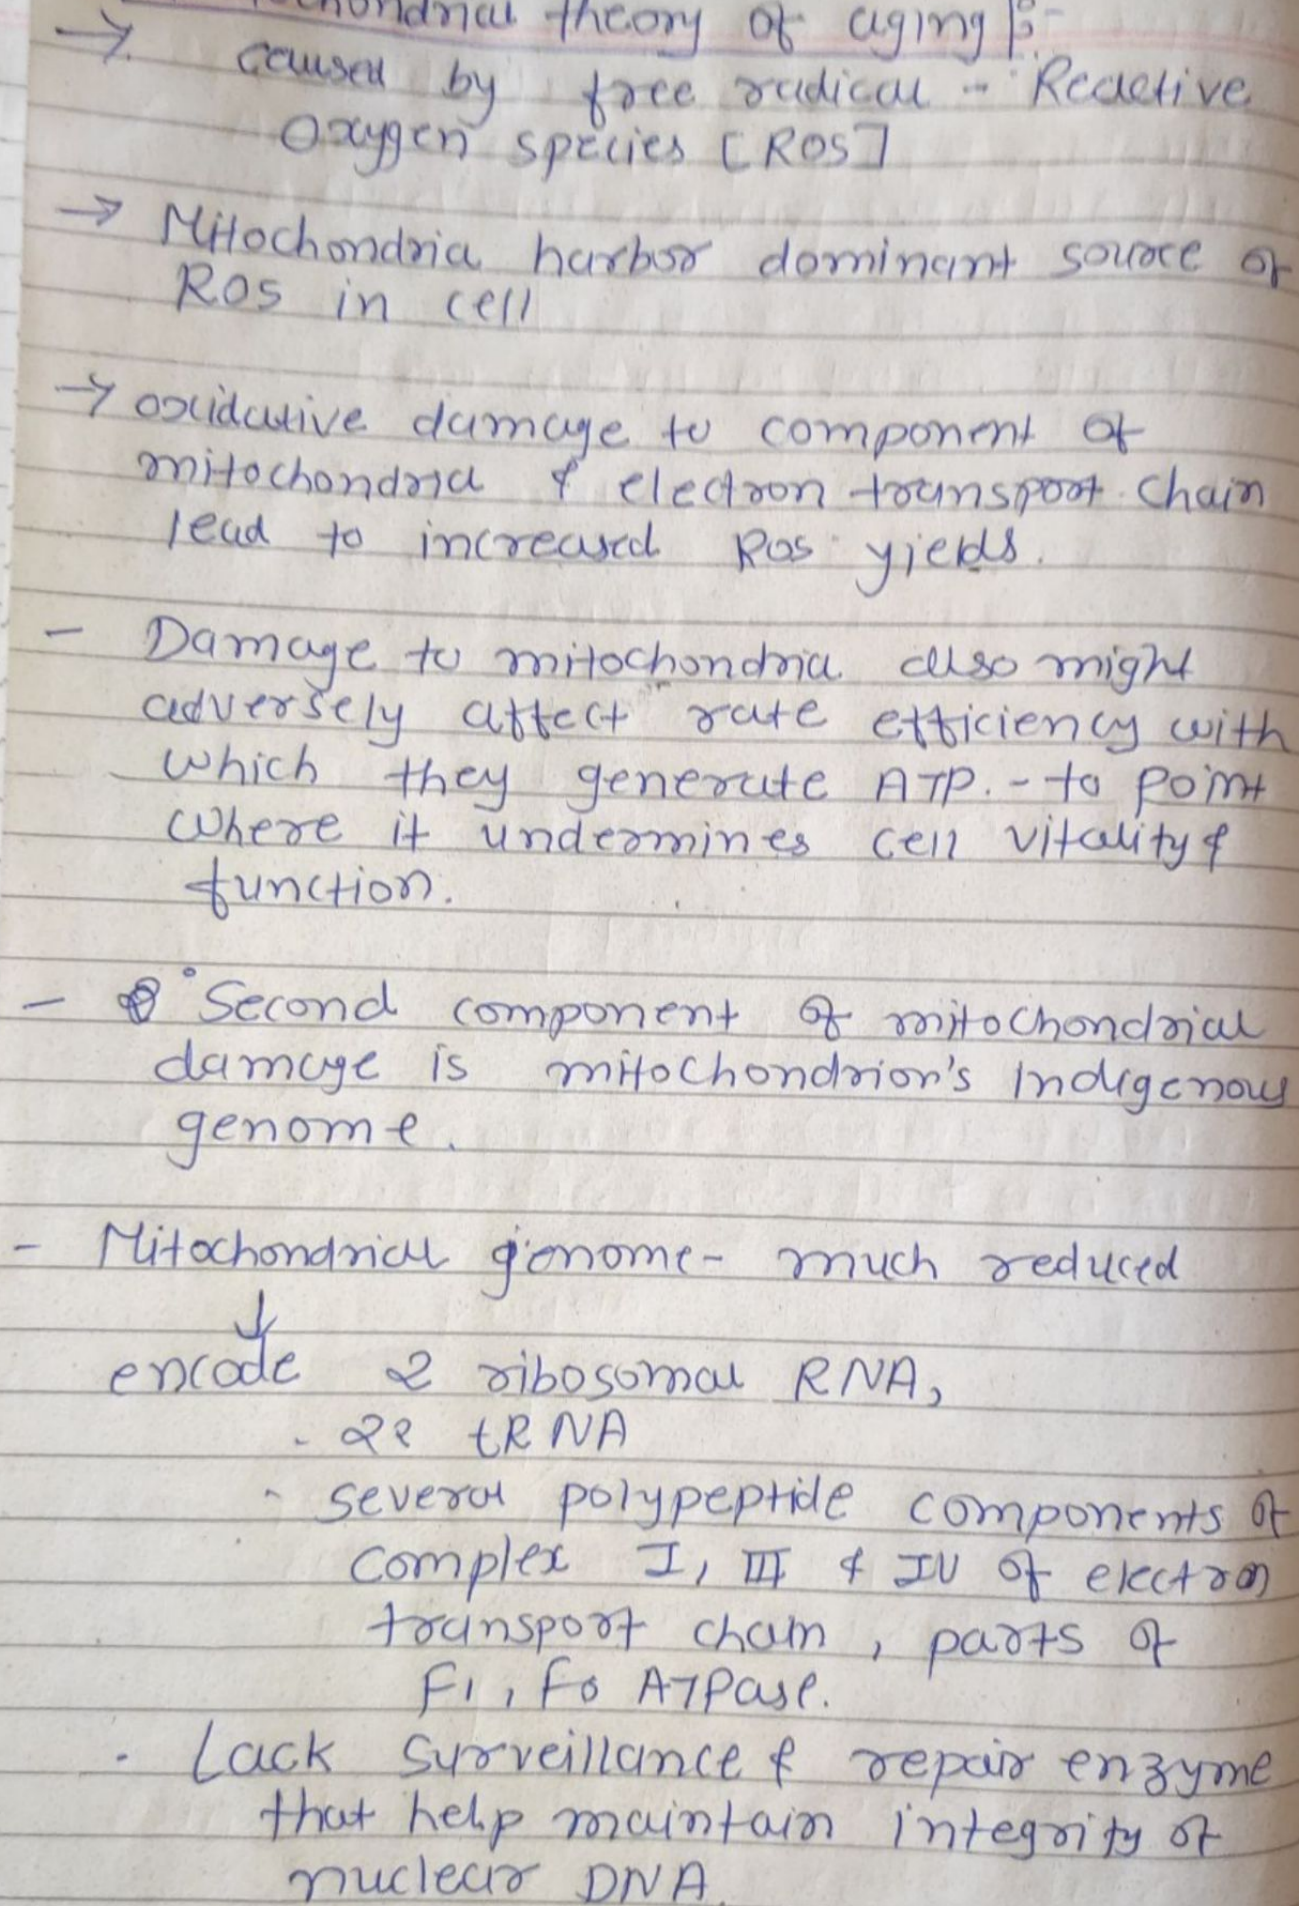 chondrial theory of aging :-
→ caused by free radical - Reactive
Oxygen species [ROS]
→ Mitochondria harbor dominant source of
ROS in cell
→ oxidative damage to component of
mitochondria & electron transport chain
lead to increased ROS yields.
- Damage to mitochondria also might
adversely affect rate efficiency with
which they generate ATP. - to point
where it undermines cell vitality &
function.
- Second component of mitochondrial
damage is mitochondrion's indigenous
genome.
- Mitochondrial genome - much reduced
↓
encode 2 ribosomal RNA,
- 22 tRNA
- several polypeptide components of
complex I, III & IV of electron
transport chain, parts of
F1, Fo ATPase.
. Lack surveillance & repair enzyme
that help maintain integrity of
nuclear DNA.